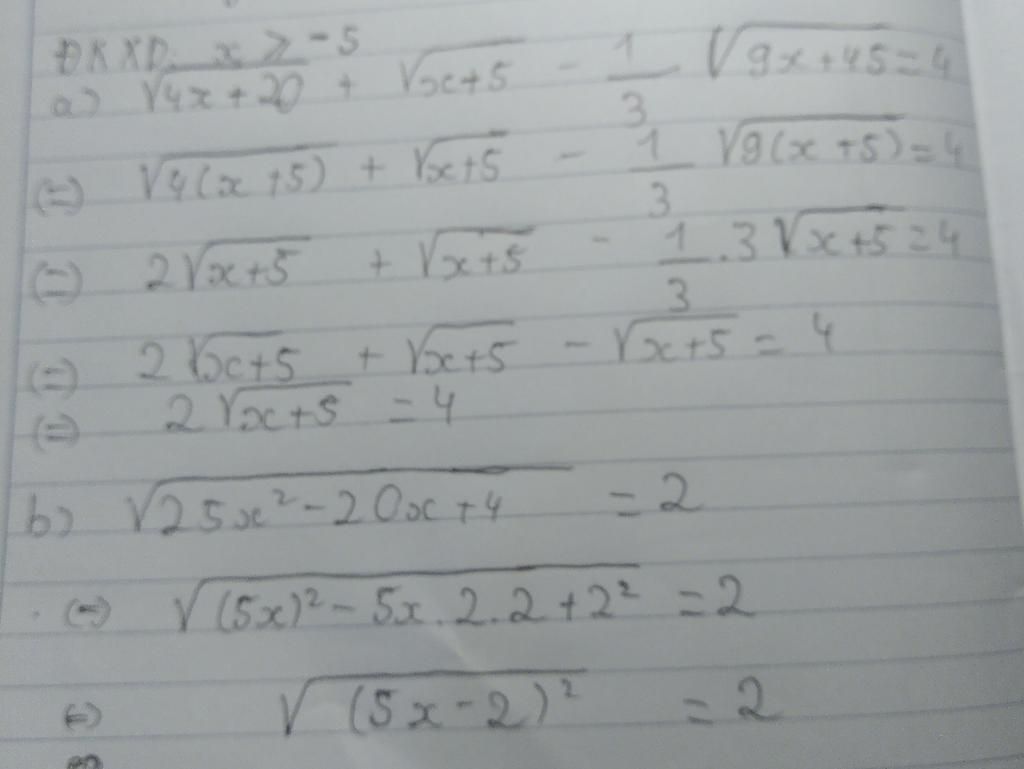 ĐKXĐ: x ≥ -5
a) √(4x+20) + √(x+5) - 1/3 √(9x+45) = 4
(=) √(4(x+5)) + √(x+5) - 1/3 √(9(x+5)) = 4
(=) 2√(x+5) + √(x+5) - 1/3 . 3√(x+5) = 4
(=) 2√(x+5) + √(x+5) - √(x+5) = 4
(=) 2√(x+5) = 4
b) √(25x² - 20x + 4) = 2
(=) √((5x)² - 5x . 2 . 2 + 2²) = 2
(=) √((5x - 2)²) = 2